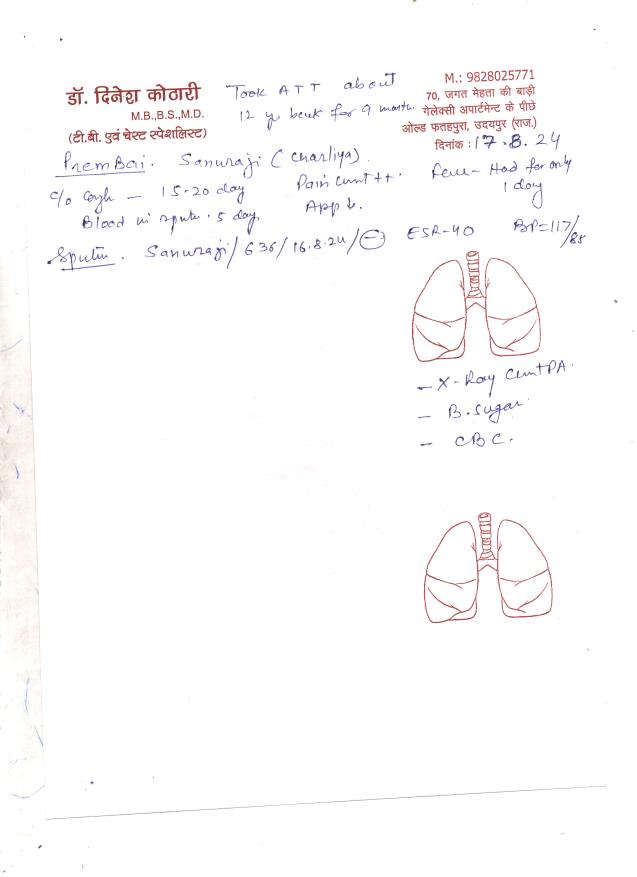 डॉ. दिनेश कोठारी
M.B.,B.S.,M.D.
(टी.बी. एवं चेस्ट स्पेशलिस्ट)
Took ATT about
12 y. back for 9 month.
M.: 9828025771
70, जगत मेहता की बाड़ी
गेलेक्सी अपार्टमेन्ट के पीछे
ओल्ड फतहपुरा, उदयपुर (राज.)
दिनांक : 17.8.24
PremBai. Sanuraji (Charliya).
c/o Cough — 15-20 day Pain ++. Fever - Had for only
1 day
Blood in sputum. 5 day. App ↓.
Sputum. Sanuraji/636/16.8.24/(−) ESR-40 BP=117/85
- X-Ray PA.
- B. Sugar
- CBC.